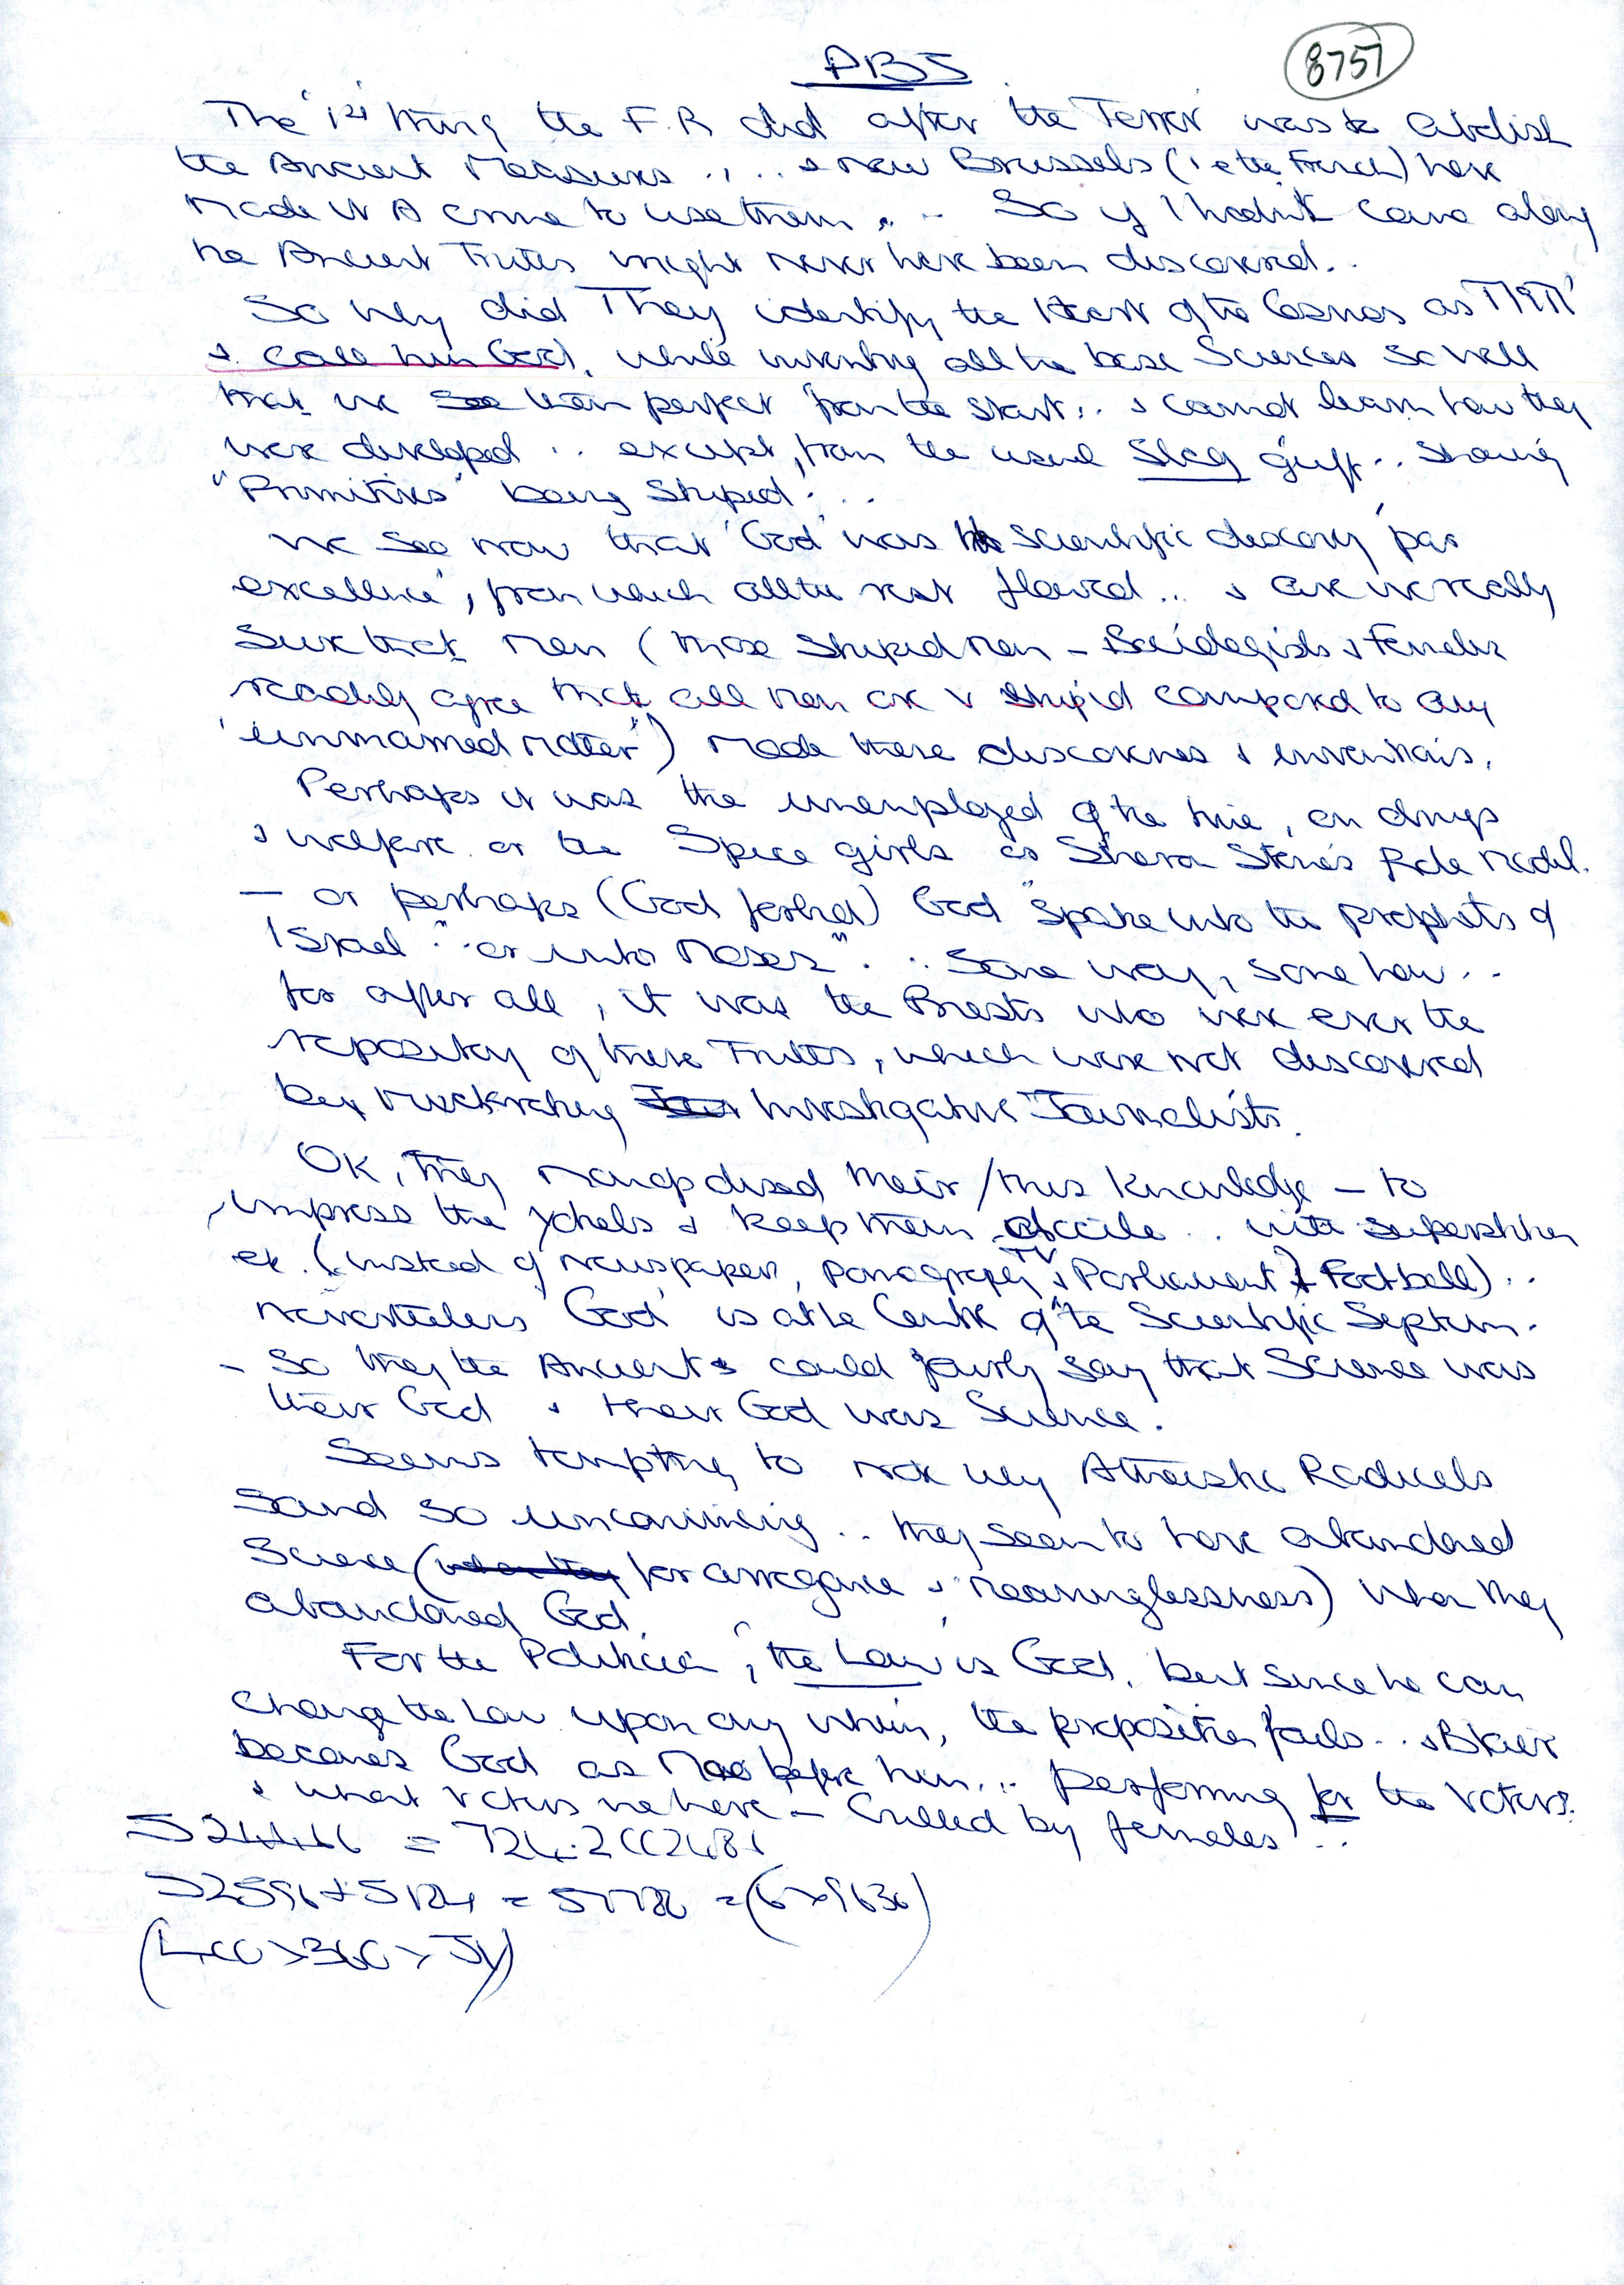 PB5
8757
The '1st' thing the F.R did after the 'Terror' was to abolish
the Ancient Measures .,.. & now Brussels (i e the French) have
made it A crime to use them ... So if I hadn't come along
he Ancient Truths might never have been discovered..
So why did They identify the Heart of the Cosmos as
& call him God, while inventing all the base Sciences so well
that we see them perfect from the start .. & cannot learn how they
were developed .. except, from the usual guff .. showing
"Primitives" being Stupid...
We see now that 'God' was the scientific discovery 'par
excellence', from which all the rest flowed .. & are we really
sure that men (those stupid men - Sociologists & Females
readily agree that all men are v stupid compared to any
'unmarried mother') made these discoveries & inventions.
Perhaps it was the unemployed of the time, on drugs
& welfare or the Spice girls as Sharon Stone's Role model.
— or perhaps (God forbid) God "spake unto the prophets of
Israel" .. or unto Moses" . .. Some way, some how ..
for after all, it was the Priests who were ever the
repository of these Truths, which were not discovered
by muckraking Investigative Journalists.
OK, they monopolised their/this knowledge — to
impress the yobs & keep them docile .. with superstition
etc. (instead of newspapers, pornography TV & Parliament & Football) ..
nevertheless 'God' is at the Centre of the Scientific Septum.
- So they the Ancients could fairly say that Science was
their God & their God was Science.
Seems tempting to ask why Atheistic Radicals
sound so unconvincing .. they seem to have abandoned
Science (for arrogance & meaninglessness) when they
abandoned God.
For the Politician, 'the Law' is God. but since he can
change the Law upon any whim, the proposition fails .. & Blair
becomes God as Mao before him ... performing for the voters.
& what voters we have — Culled by females ..
= 724.2
52596 + 5184 = 57780 = (6 x 9630)